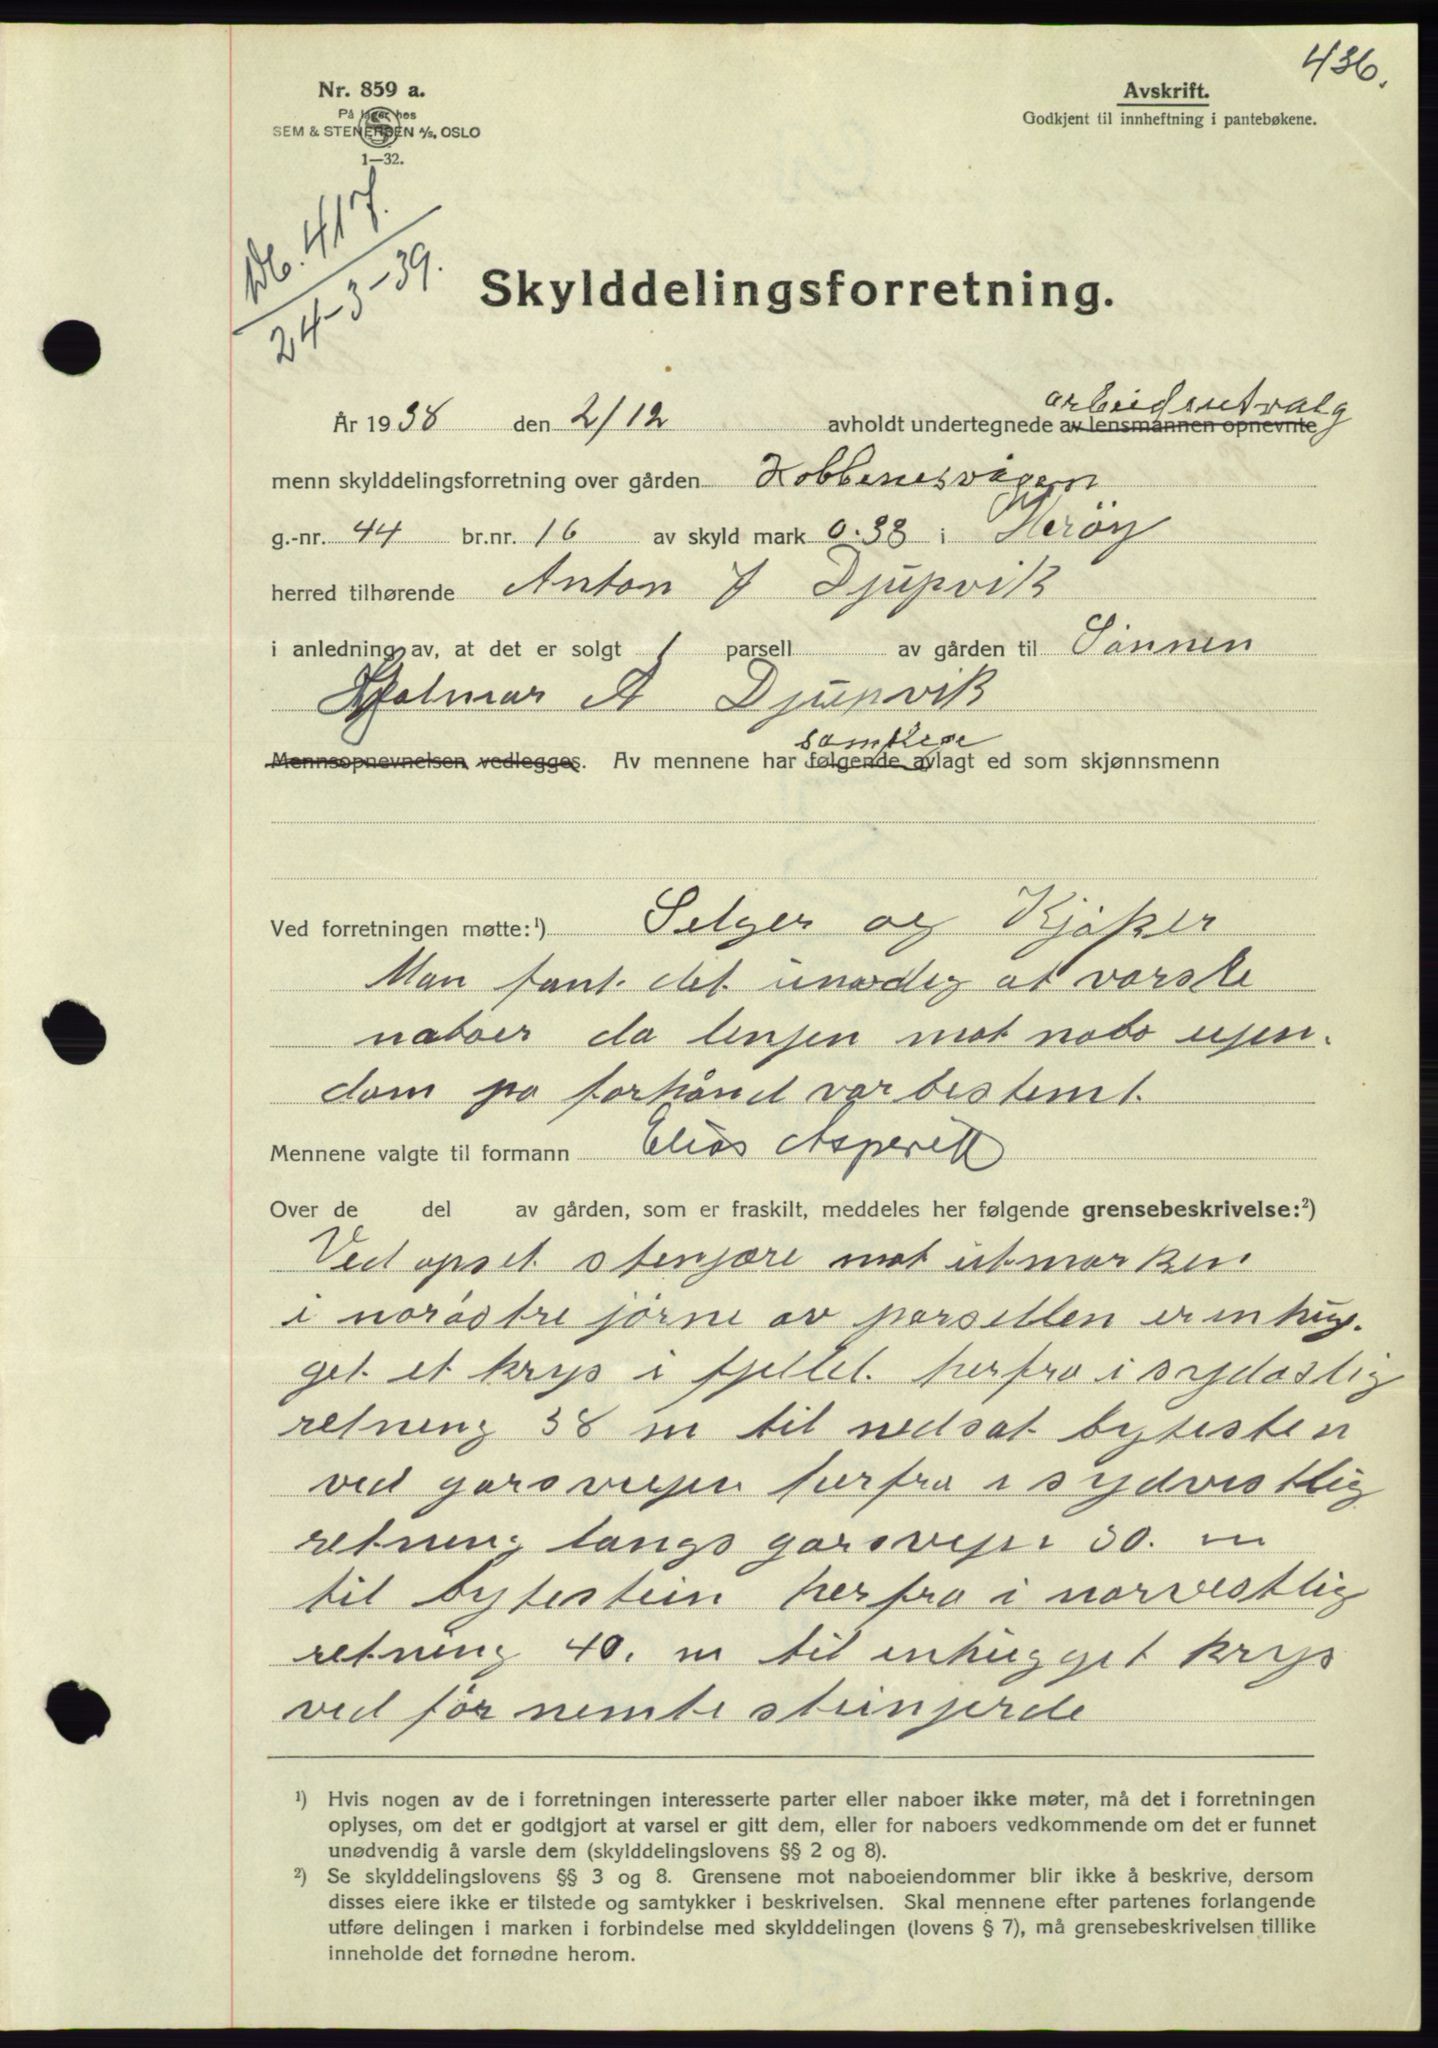 436.
Nr. 859 a.
På lager hos
SEM & STENERSEN A/S, OSLO
1—32.
Avskrift.
Godkjent til innheftning i pantebøkene.
Db. 417.
24-3-39.
Skylddelingsforretning.
arbeidsutvalg
År 1938 den 2/12 avholdt undertegnede av lensmannen opnevnte
menn skylddelingsforretning over gården Kobbenesvågen
g.-nr. 44 br.nr. 16 av skyld mark 0.38 i Herøy
herred tilhørende Anton J Djupvik
i anledning av, at det er solgt 1 parsell av gården til Sønnen
Hjalmar A Djupvik
samtlige
Mennsopnevnelsen vedlegges. Av mennene har følgende avlagt ed som skjønnsmenn
Ved forretningen møtte:¹) Selger og Kjøper
Man fant det unødig at varsle
naboer da lingen mot nabo eien.
dom på forhånd var bestemt.
Mennene valgte til formann Elias Aspevik
Over de del av gården, som er fraskilt, meddeles her følgende grensebeskrivelse:²)
Ved opset stengjære mot utmarken
i norøstre jørne av parsellen er inhug.
get et krys i fjellet. herfra i sydøstlig
retning 38 m til nedsat bytesten
ved garsveien herfra i sydvestlig
retning langs garsvejen 30. m
til bytestein herfra i norvestlig
retning 40. m til inhugget kryss
ved før nemte steingjerde
¹) Hvis nogen av de i forretningen interesserte parter eller naboer ikke møter, må det i forretningen
oplyses, om det er godtgjort at varsel er gitt dem, eller for naboers vedkommende om det er funnet
unødvendig å varsle dem (skylddelingslovens §§ 2 og 8).
²) Se skylddelingslovens §§ 3 og 8. Grensene mot naboeiendommer blir ikke å beskrive, dersom
disses eiere ikke er tilstede og samtykker i beskrivelsen. Skal mennene efter partenes forlangende
utføre delingen i marken i forbindelse med skylddelingen (lovens § 7), må grensebeskrivelsen tillike
inneholde det fornødne herom.